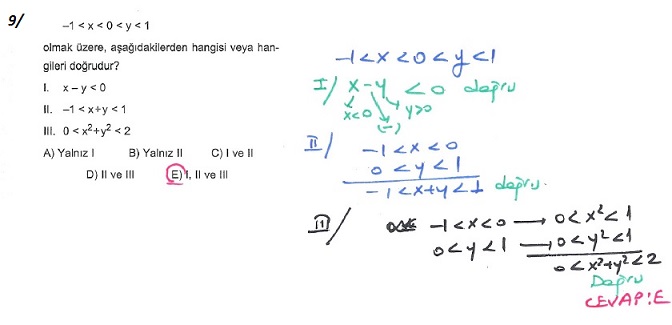 9/
-1 < x < 0 < y < 1
olmak üzere, aşağıdakilerden hangisi veya han-
gileri doğrudur?
I. x – y < 0
II. –1 < x+y < 1
III. 0 < x²+y² < 2
A) Yalnız I B) Yalnız II C) I ve II
D) II ve III E) I, II ve III
-1 < x < 0 < y < 1
I/ x - y < 0 doğru
x<0 y>0
(-)
II/ -1 < x < 0
0 < y < 1
-1 < x+y < 1 doğru.
III/ -1 < x < 0 → 0 < x² < 1
0 < y < 1 → 0 < y² < 1
0 < x²+y² < 2
Doğru
CEVAP:E